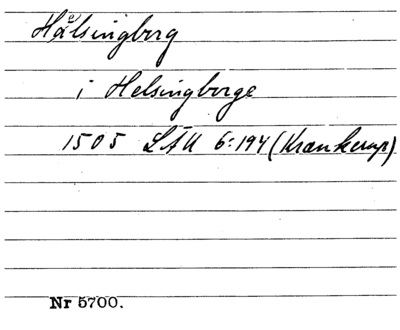 Hälsingborg
i Helsingborge
1505 LÄU 6:194 (Krankerup)
Nr 5700.